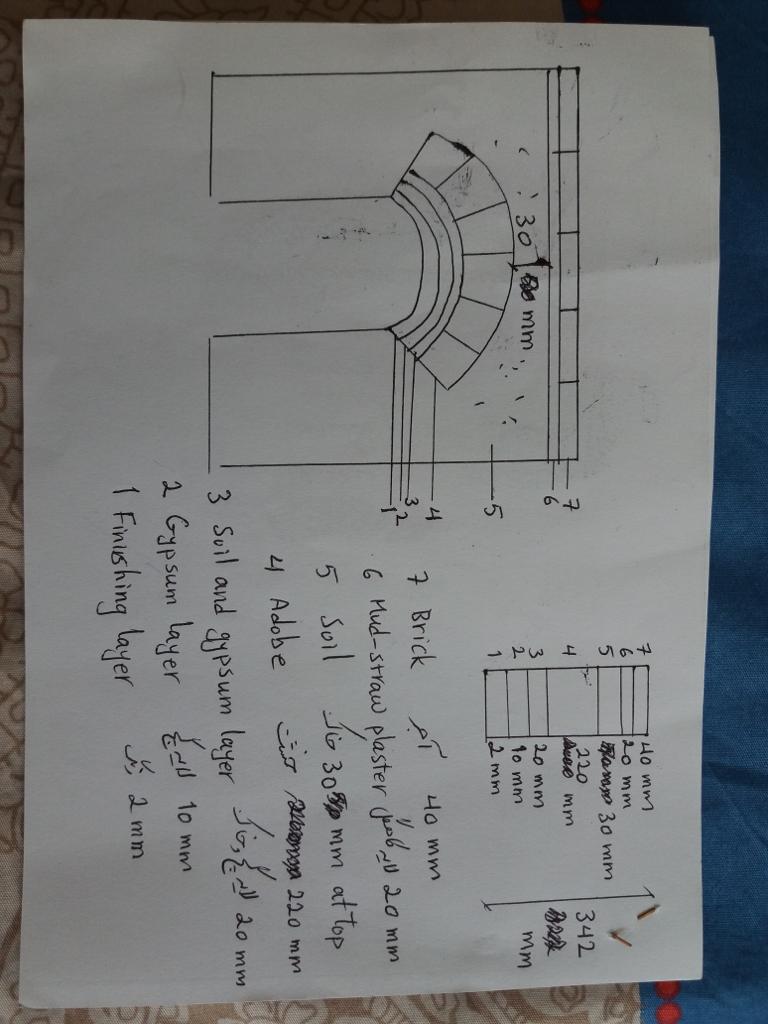 30 mm
7
6
5
4
3
2
1
7 40 mm
6 20 mm
5 30 mm
4 220 mm
3 20 mm
2 10 mm
1 2 mm
342 mm
7 Brick آجر 40 mm
6 Mud-straw plaster لایه کاهگل 20 mm
5 Soil خاک 30 mm at top
4 Adobe خشت 220 mm
3 Soil and gypsum layer لایه گچ و خاک 20 mm
2 Gypsum layer لایه گچ 10 mm
1 Finishing layer رنگ 2 mm